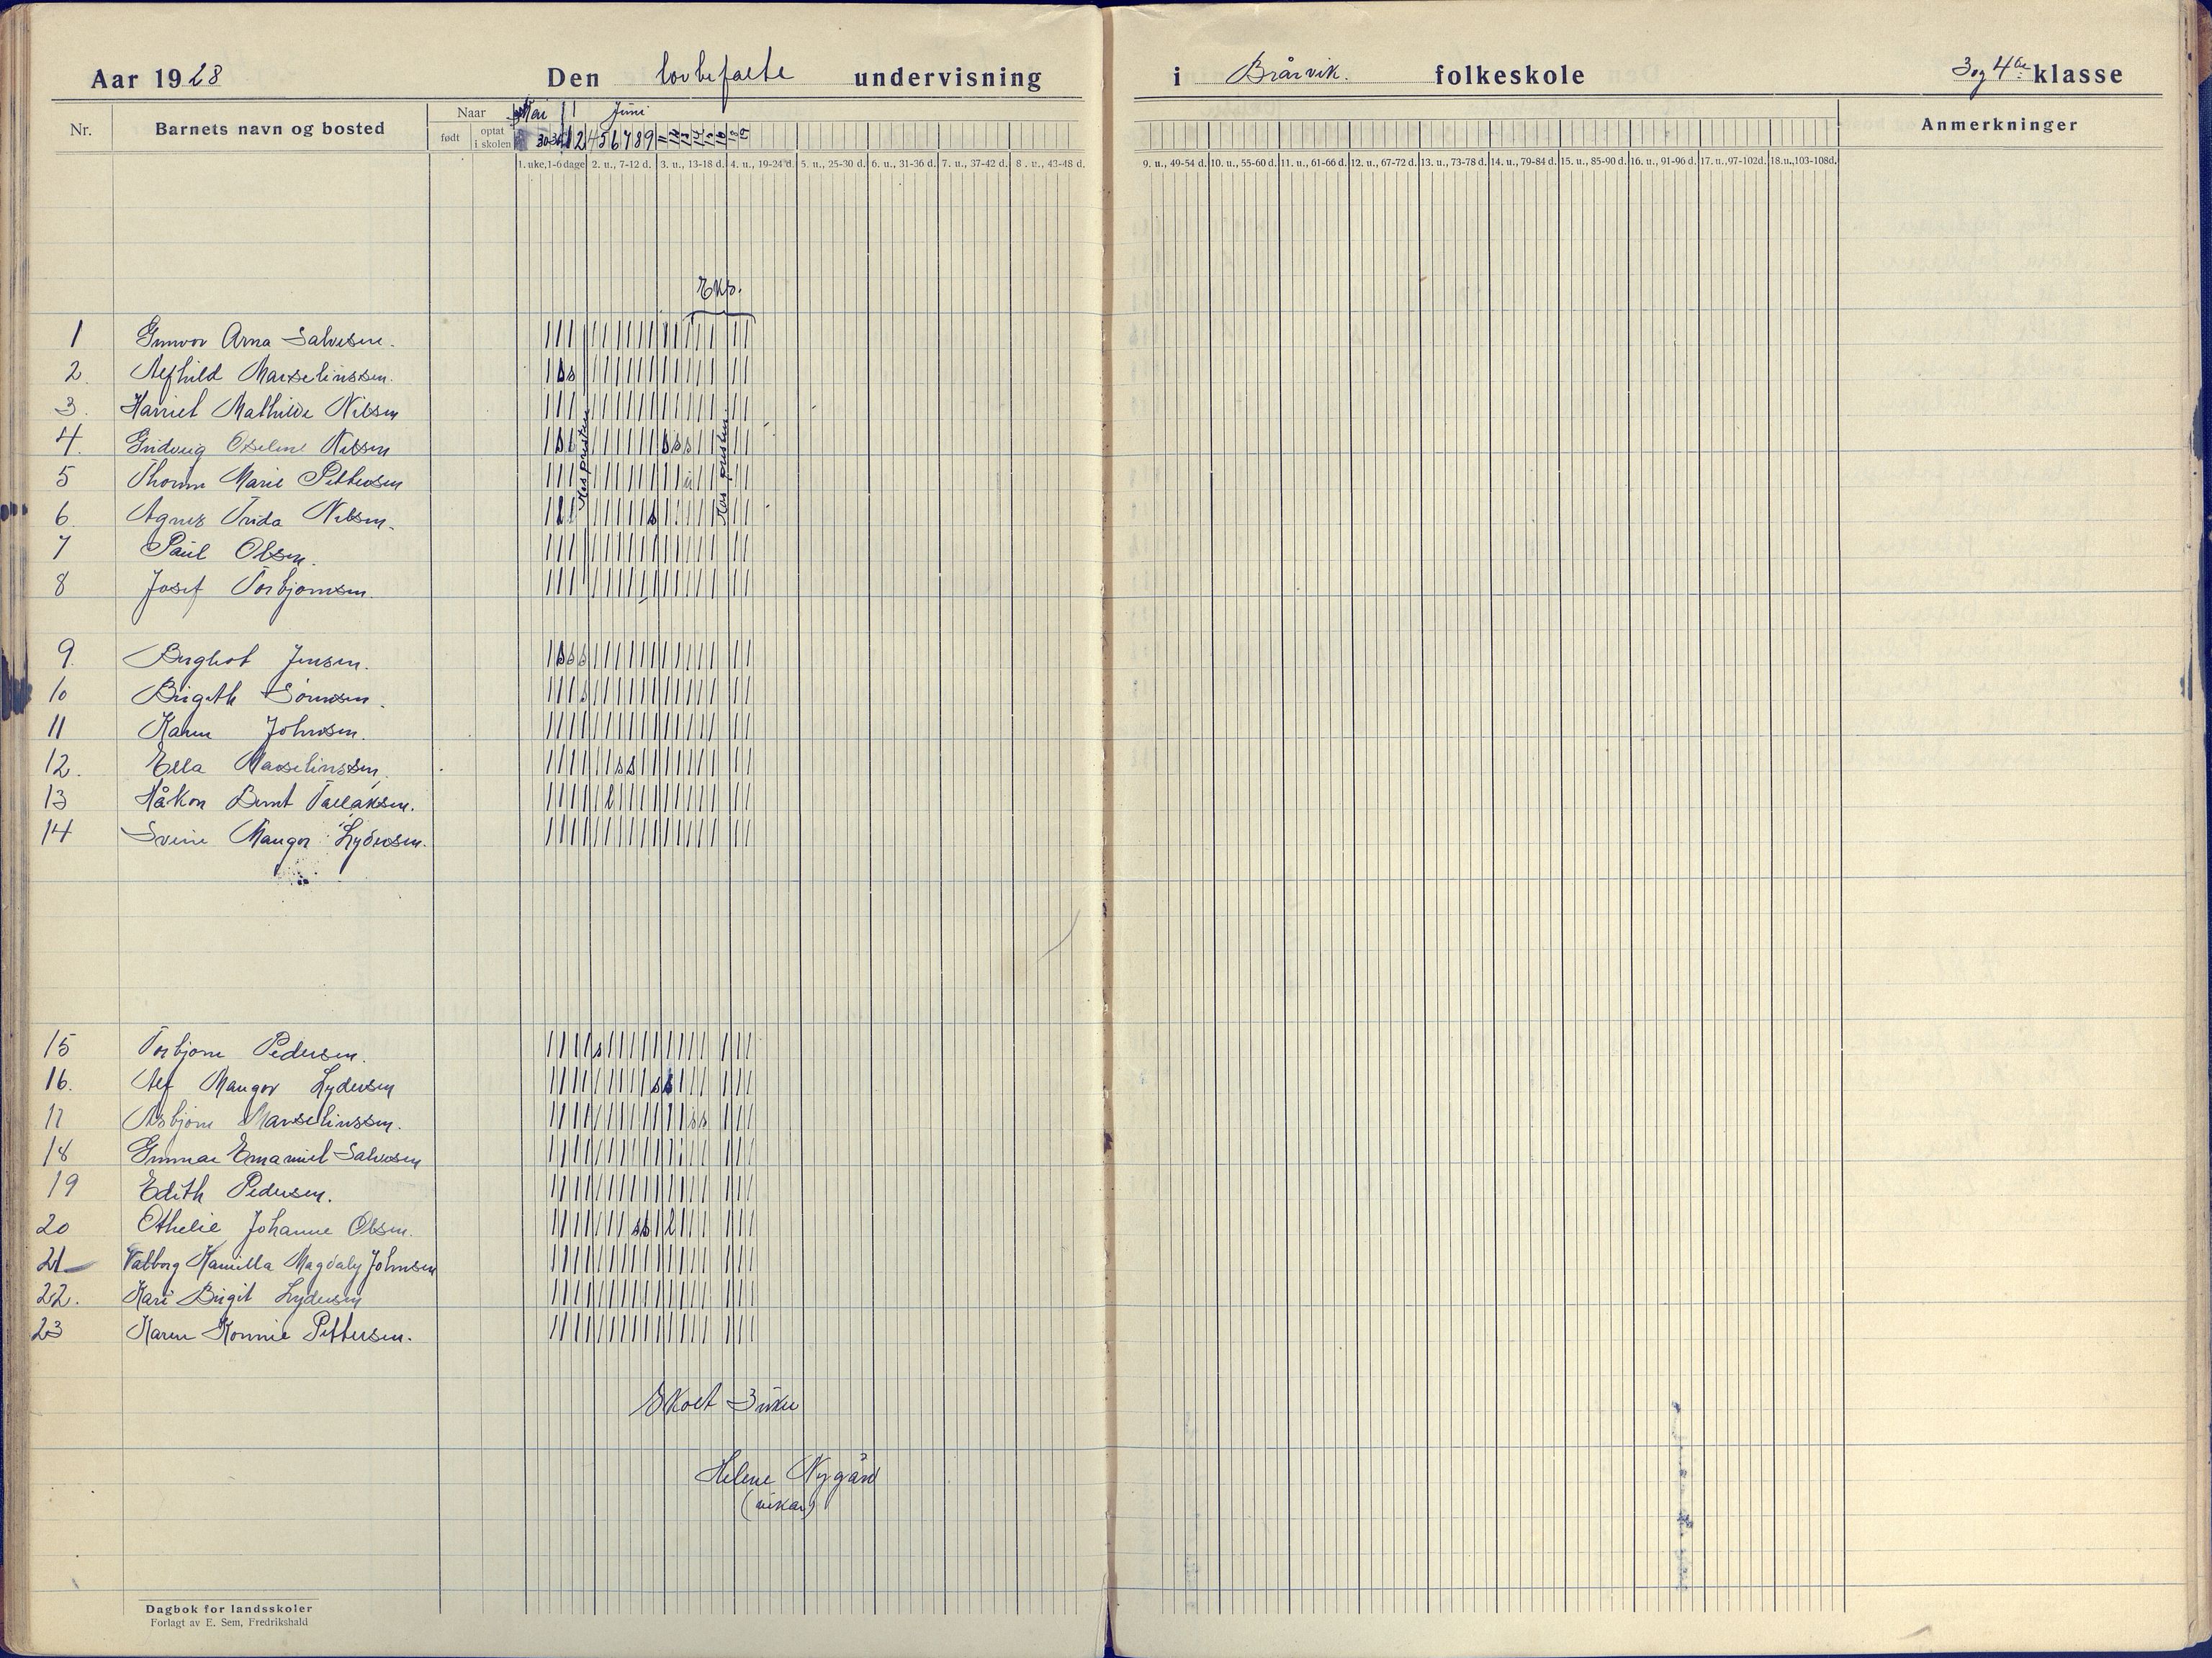 Aar 1928 Den lovbefalte undervisning i Brårvik. folkeskole 3 og 4de klasse
Nr. Barnets navn og bosted Naar Mai Juni Anmerkninger
født optat i skolen 30 31 1 2 4 5 6 7 8 9 11 12 13 14 15 16 18 19
1. uke, 1-6 dage 2. u., 7-12 d. 3. u., 13-18 d. 4. u., 19-24 d. 5. u., 25-30 d. 6. u., 31-36 d. 7. u., 37-42 d. 8. u., 43-48 d. 9. u., 49-54 d. 10. u., 55-60 d. 11. u., 61-66 d. 12. u., 67-72 d. 13. u., 73-78 d. 14. u., 79-84 d. 15. u., 85-90 d. 16. u., 91-96 d. 17. u., 97-102 d. 18. u., 103-108 d.
1 Gunvor Arna Salvesen.
2. Alfhild Marselinssen.
3. Harriet Mathilde Nilsen
4. Gudveig Oseline Nilsen
5 Thorun Marie Pettersen
6. Agnes Frida Nilsen.
7 Paul Olsen.
8 Josef Torbjørnsen.
Hos presten
Hos presten
9. Berghot Jensen.
10 Birgith Sørensen.
11 Karen Johnsen.
12. Ella Marselinssen.
13 Håkon Bernt Tallaksen.
14 Svein Mangor Lydersen.
15 Torbjørn Pedersen.
16. Alf Mangor Lydersen
17 Asbjørn Marselinssen.
18 Gunnar Emanuel Salvesen
19 Edith Pedersen.
20 Othelie Johanne Olsen.
21 Valborg Kamilla Magdaly Johnsen
22. Kari Birgit Lydersen
23 Karen Konnie Pettersen.
Skolt 3 uker
Helene Nygård
(vikar)
Dagbok for landsskoler
Forlagt av E. Sem, Fredrikshald